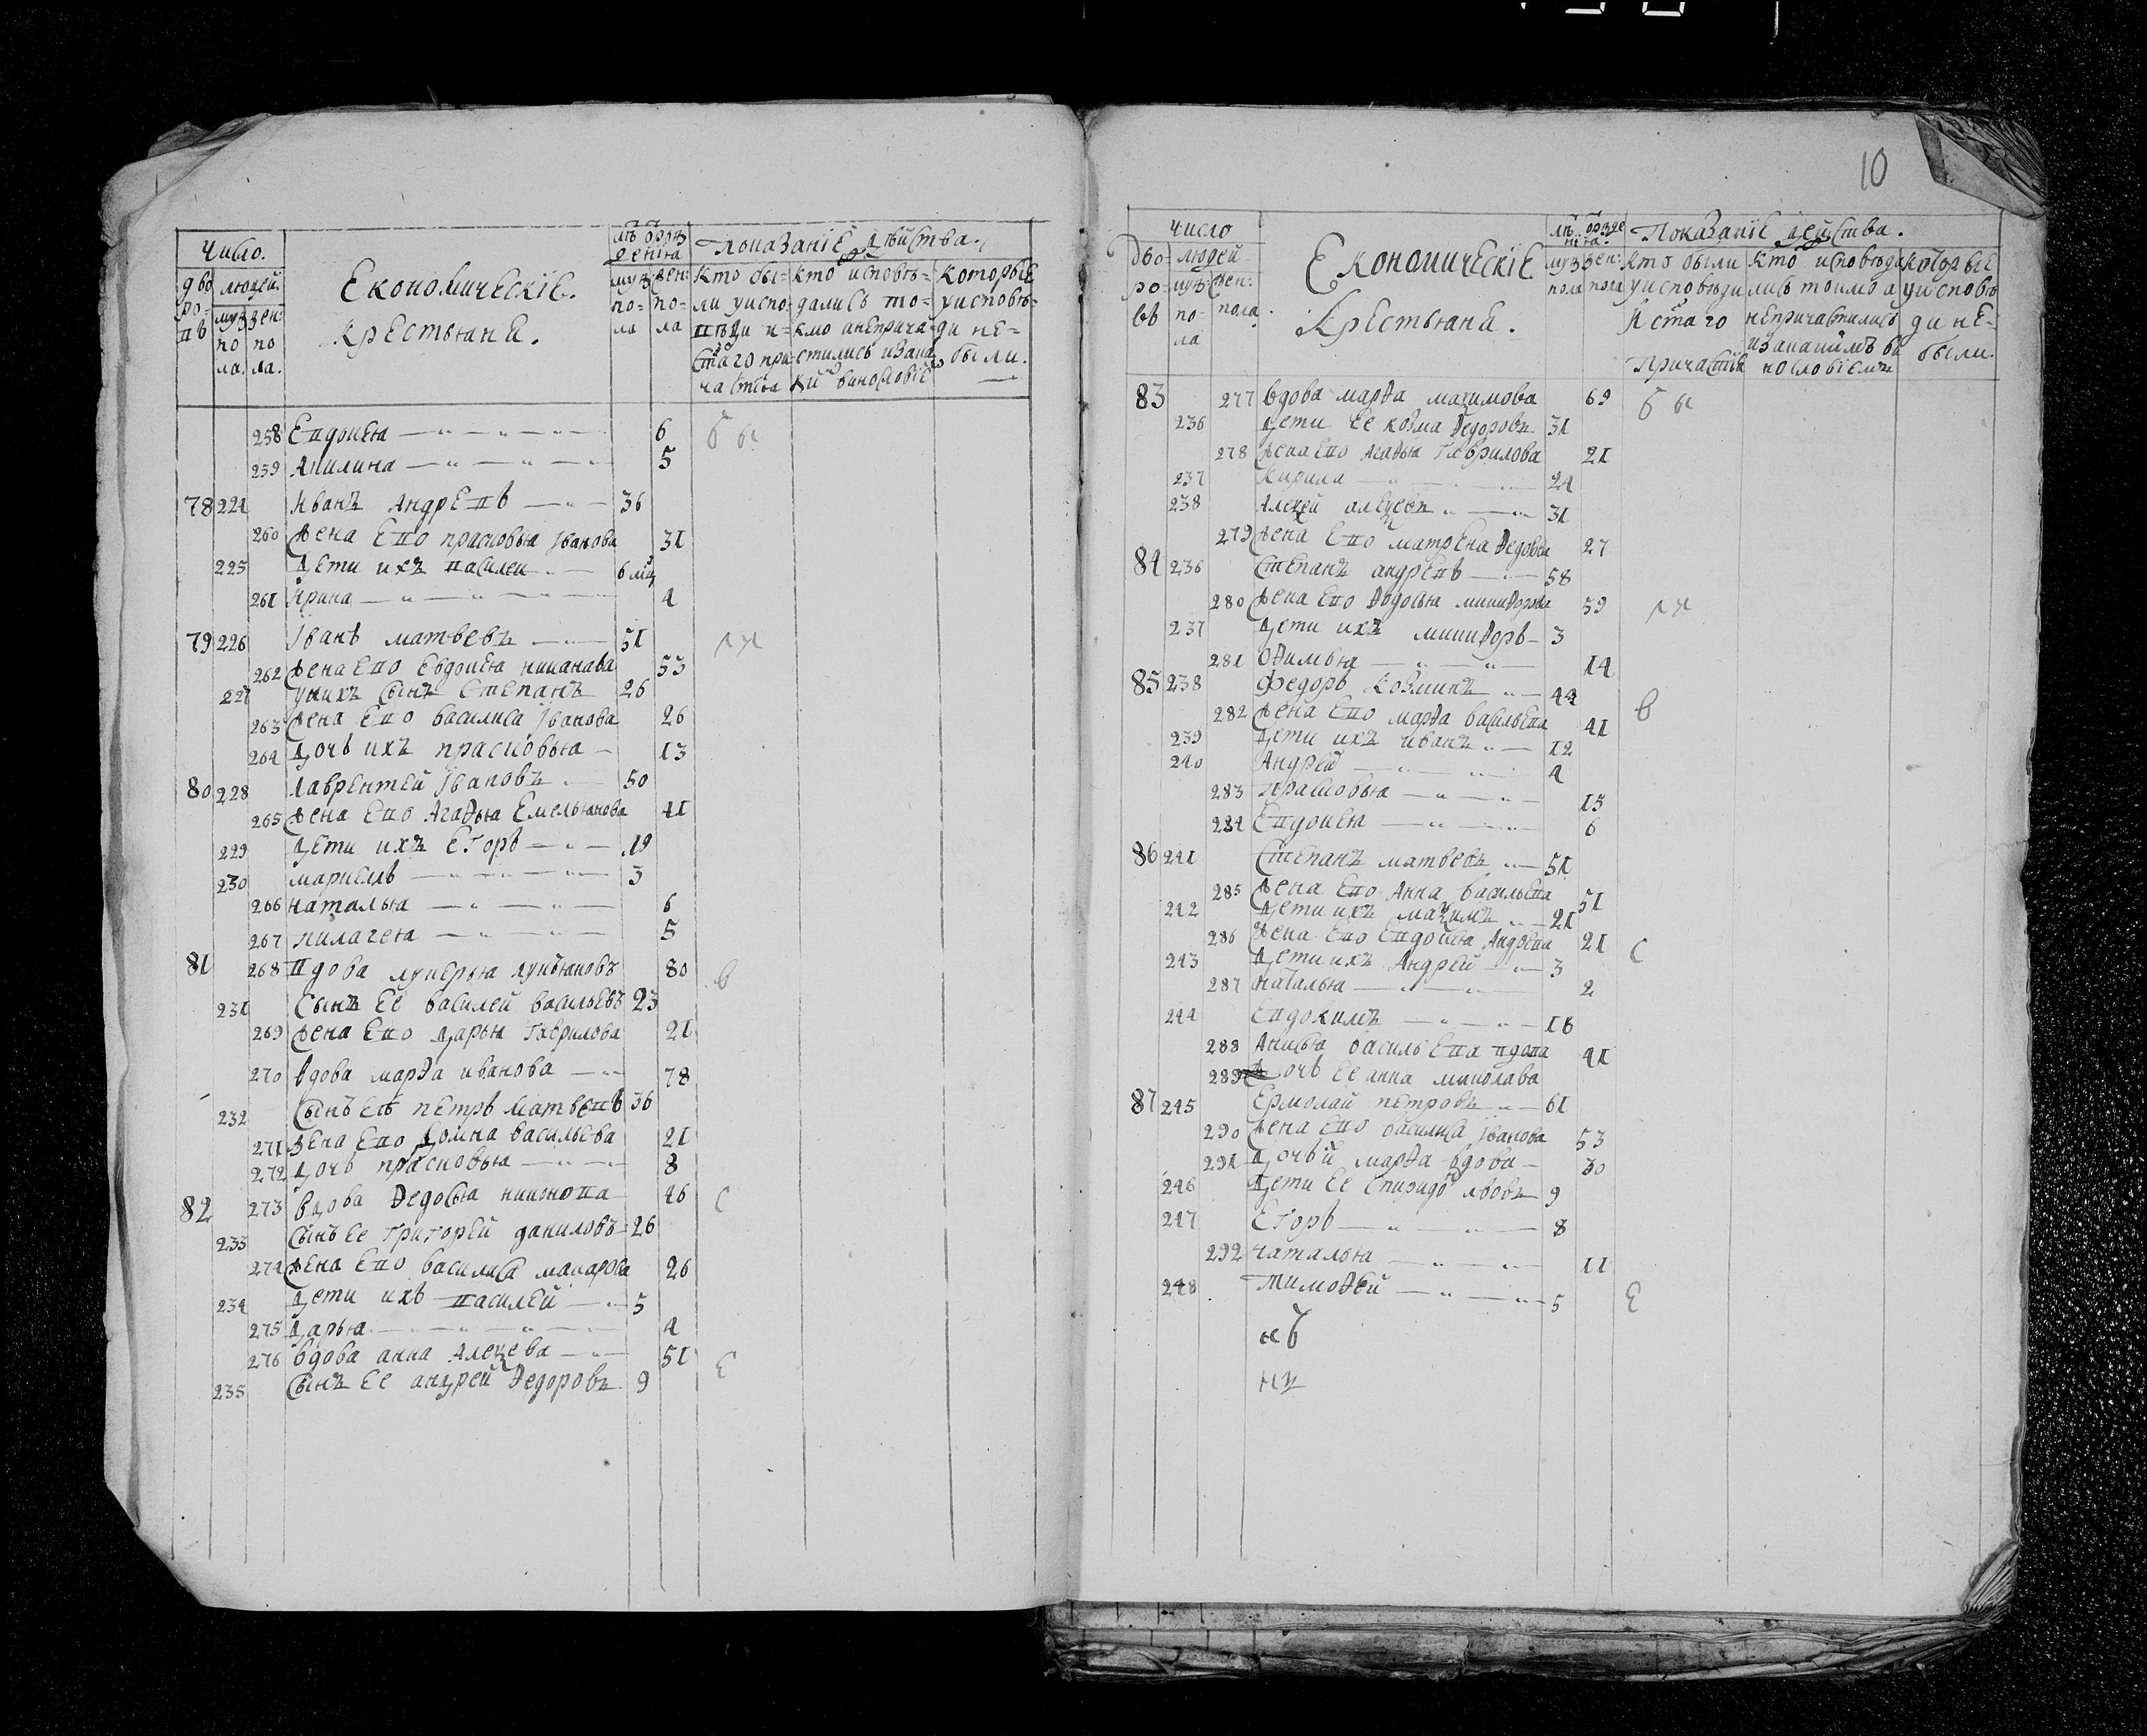 Число.
дво
ро=
въ
людей
муж
по
ла.
жен:
по
ла.
Економическіе.
крестьяне.
лѣтъ отрож
денія
муж:
по=
ла
жен:
по=
ла
показаніе дѣйства.
кто бы=
ли уиспо=
вѣди и=
стаго при=
частія
кто исповѣ=
дались то=
кмо анеприча=
стились иЗака
кий винословіе
которые
уисповѣ=
ди не=
были.
258 Евдокея 6 б ы
259 Акилина 5
78 224 Иванъ Андревъ 36
260 жена Его прасковья Іванова 31
225 Дети ихъ василеи 6 мц
261 Ирина 4
79 226 Іванъ матвевъ 51
262 жена Его Евдокея никанава 53
227 уникъ сынъ Степанъ 26
263 жена Его василиса Іванова 26
264 Дочь ихъ прасковья 13
80 228 Лаврентей Івановъ 50
265 жена Его Агаѳья Емельянова 41
229 Дети ихъ Егоръ 19
230 маркелъ 3
266 наталья 6
267 пилагея 5
81 268 вдова лукерья лукьяновъ 80 в
231 Сынъ Ее василей васильевъ 23
269 жена Его Дарья Гаврилова 21
270 вдова марѳа иванова 78
232 Сынъ еѣ петръ матвевъ 36
271 жена Его Домна васильева 21
272 Дочь прасковья 8
82 273 вдова Ѳедосья никонова 46 с
233 Сынъ Ее Григорей даниловъ 26
274 жена Его василиса макарова 26
234 Дети ихъ василей 5
275 Дарья 4
276 вдова анна Алеѯева 51
235 Сынъ Ее андрей Ѳедоровъ 9 Е
10
число
дво
ро=
въ
людей
муж:
по=
ла
жен:
пола
Економическіе
Крестьяне.
лѣ. отрожде
нія.
муж
пола
жен:
пола
Показаніе действа.
кто были
уисповѣди
Истаго
Причастія
кто исповѣда
лись токмо а
непричастились
изакакимъ ви
нословіемъ
которые
уисповѣ
ди не=
были.
83 277 вдова марѳа маѯимова 69 б ы
236 Дети Ее козма Ѳедоровъ 31
278 жена Его Агаѳья Гаврилова 21
237 Кирила 24
238 Алеѯей алеѯевъ 31
279 жена Его матрена Ѳедова 27
84 236 Степанъ андревъ 58
280 жена Его Ѳедосья микиѳорва 59
237 Дети ихъ микиѳоръ 3
281 Оѳимья 14
85 238 Федоръ козминъ 44
282 жена Его марѳа васильева 41 в
239 Дети ихъ иванъ 12
240 Андрей 4
283 прасковья 15
284 Евдокея 6
86 241 Степанъ матвевъ 51
285 жена Его Анна васильева 51
242 Дети ихъ маѯимъ 21
286 жена Его Евдокея Андрева 21 с
243 Дети ихъ Андрей 3
287 наталья 2
244 Евдокимъ 16
288 Анисья василева вдова 41
289 Дочь ее анна миколава
87 245 Ермолай петровъ 61
290 жена Его василиса Іванова 53
291 Дочьй марѳа вдова 30
246 Дети Ее Спиридо львовъ 9
247 Егоръ 8
292 наталья 11
248 тимоѳей 5 Е